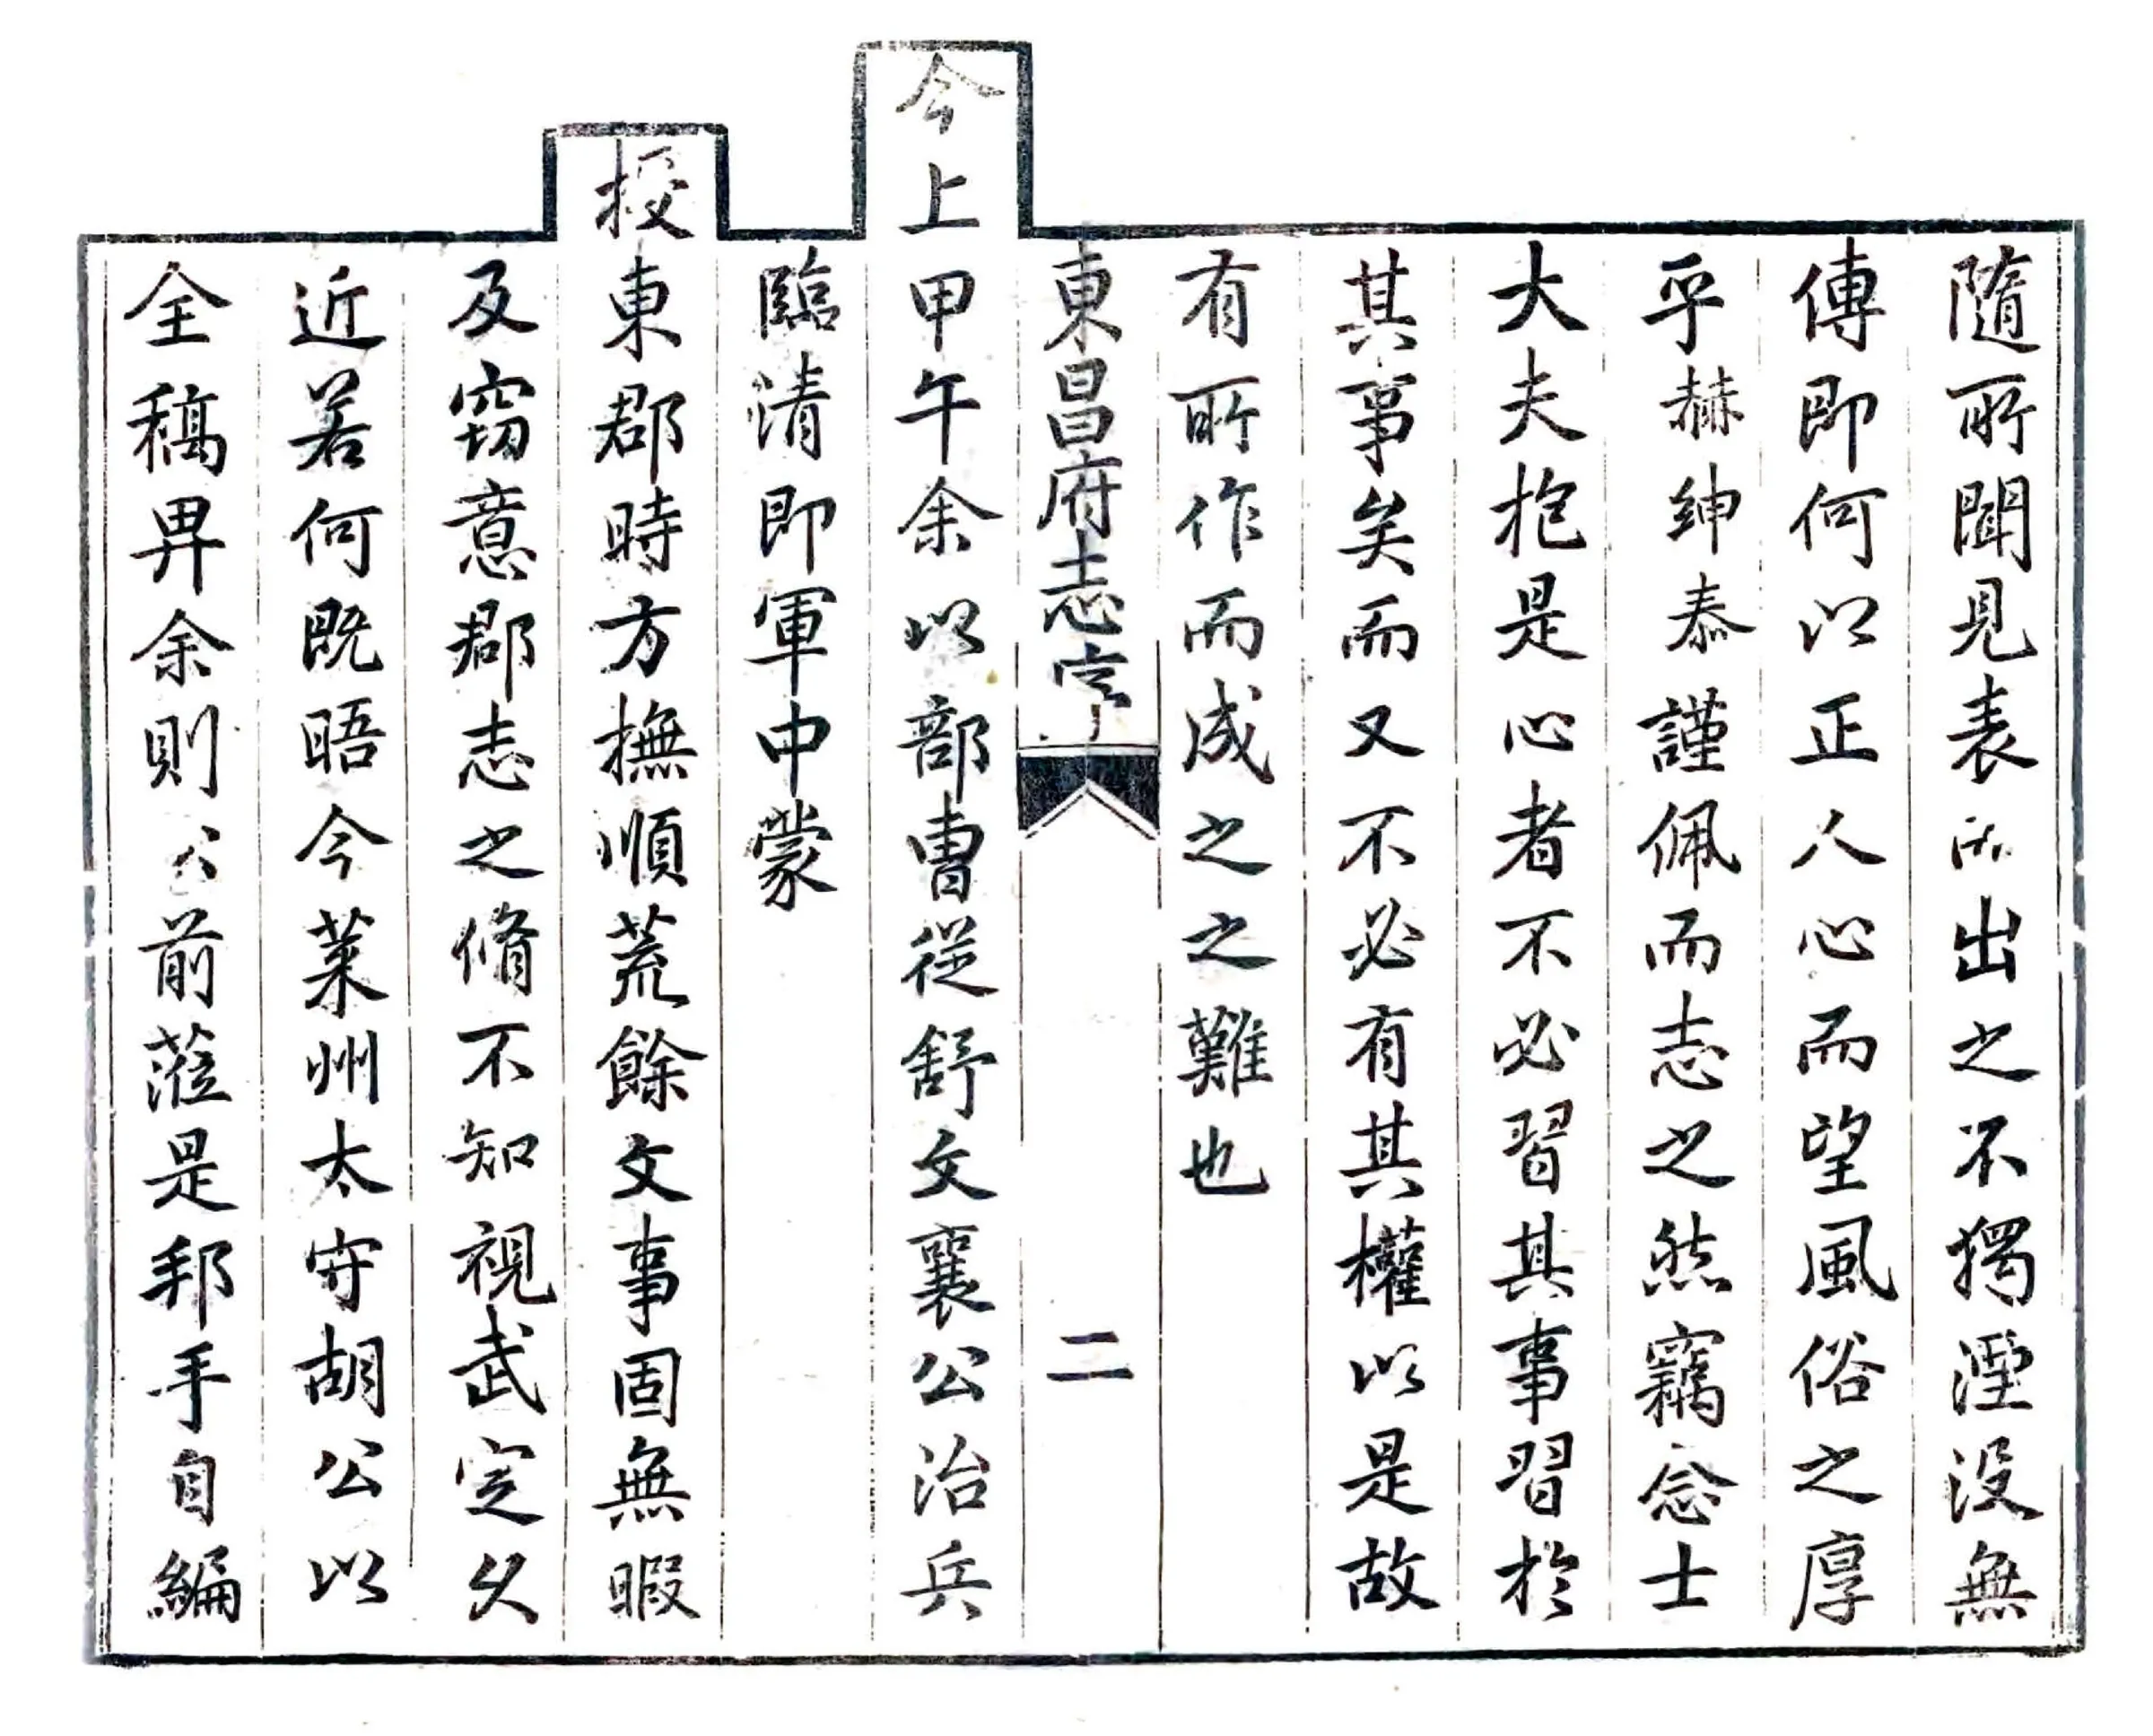 隨所聞見表而出之不獨湮没無
傳即何以正人心而望風俗之厚
乎赫紳泰謹佩而志之然竊念士
大夫抱是心者不必習其事習於
其事矣而又不必有其權以是故
有所作而成之之難也
東昌府志序
二
今上甲午余以部曹從舒文襄公治兵
臨清即軍中蒙
授東郡時方撫順荒餘文事固無暇
及竊意郡志之脩不知視武定久
近若何既晤今萊州太守胡公以
全稿畀余則公前蒞是邦手自編